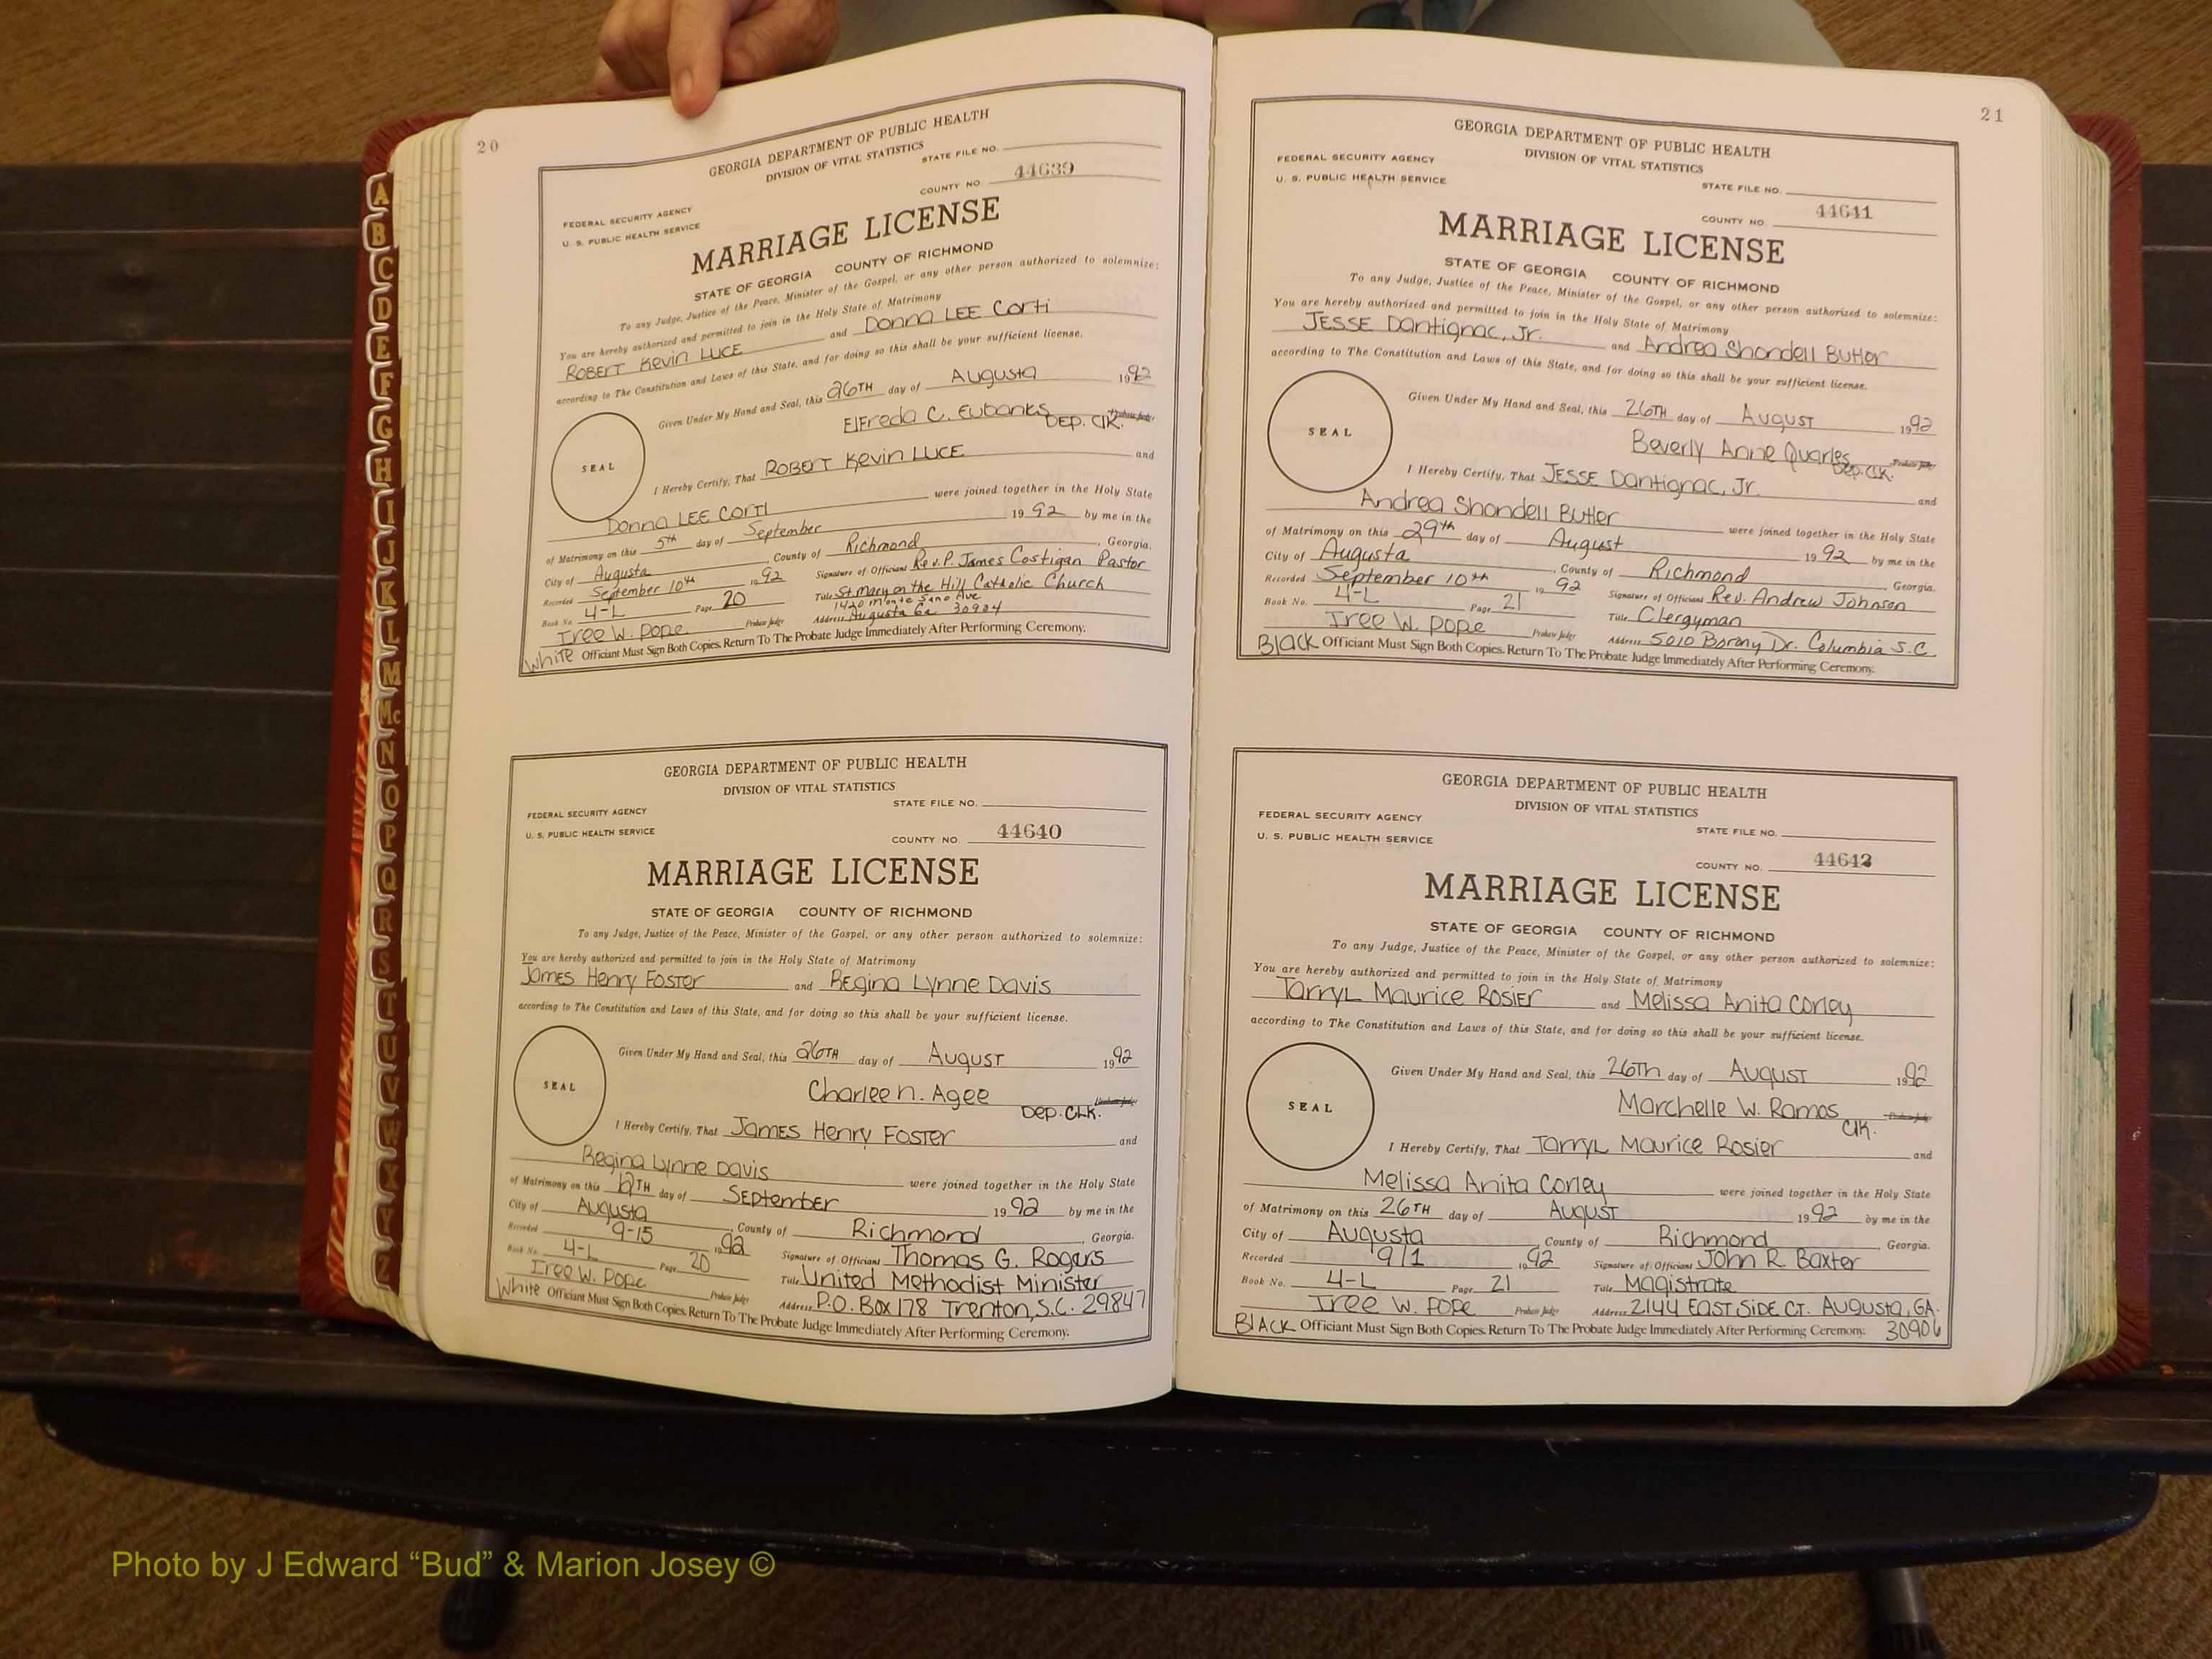 20
GEORGIA DEPARTMENT OF PUBLIC HEALTH
DIVISION OF VITAL STATISTICS
STATE FILE NO.
COUNTY NO. 44639
FEDERAL SECURITY AGENCY
U. S. PUBLIC HEALTH SERVICE
MARRIAGE LICENSE
STATE OF GEORGIA COUNTY OF RICHMOND
To any Judge, Justice of the Peace, Minister of the Gospel, or any other person authorized to solemnize:
You are hereby authorized and permitted to join in the Holy State of Matrimony
ROBERT Kevin LUCE and Donna LEE Corti
according to The Constitution and Laws of this State, and for doing so this shall be your sufficient license.
Given Under My Hand and Seal, this 26TH day of Augusta 1992
SEAL
ElFreda C. Eubanks DEP. Clk. Probate Judge
I Hereby Certify, That ROBERT Kevin LUCE and
Donna LEE CORTI were joined together in the Holy State
of Matrimony on this 5th day of September 1992 by me in the
City of Augusta, County of Richmond, Georgia.
Recorded September 10th 1992 Signature of Officiant Rev. P. James Costigan Pastor
Book No. 4-L Page 20 Title St Mary on the Hill Catholic Church
1420 Monte Sano Ave
Iree W. Pope Probate Judge Address Augusta Ga 30904
White Officiant Must Sign Both Copies. Return To The Probate Judge Immediately After Performing Ceremony.
GEORGIA DEPARTMENT OF PUBLIC HEALTH
DIVISION OF VITAL STATISTICS
STATE FILE NO.
FEDERAL SECURITY AGENCY
U. S. PUBLIC HEALTH SERVICE
COUNTY NO. 44640
MARRIAGE LICENSE
STATE OF GEORGIA COUNTY OF RICHMOND
To any Judge, Justice of the Peace, Minister of the Gospel, or any other person authorized to solemnize:
You are hereby authorized and permitted to join in the Holy State of Matrimony
James Henry Foster and Regina Lynne Davis
according to The Constitution and Laws of this State, and for doing so this shall be your sufficient license.
Given Under My Hand and Seal, this 26TH day of August 1992
SEAL
Charlee n. Agee Dep. Clk. Probate Judge
I Hereby Certify, That James Henry Foster and
Regina Lynne Davis were joined together in the Holy State
of Matrimony on this day of September 1992 by me in the
City of Augusta, County of Richmond, Georgia.
Recorded 9-15 1992 Signature of Officiant Thomas G. Rogers
Book No. 4-L Page 20 Title United Methodist Minister
Iree W. Pope Probate Judge Address P.O. Box 178 Trenton, S.C. 29847
White Officiant Must Sign Both Copies. Return To The Probate Judge Immediately After Performing Ceremony.
21
GEORGIA DEPARTMENT OF PUBLIC HEALTH
DIVISION OF VITAL STATISTICS
FEDERAL SECURITY AGENCY
U. S. PUBLIC HEALTH SERVICE
STATE FILE NO.
COUNTY NO. 44641
MARRIAGE LICENSE
STATE OF GEORGIA COUNTY OF RICHMOND
To any Judge, Justice of the Peace, Minister of the Gospel, or any other person authorized to solemnize:
You are hereby authorized and permitted to join in the Holy State of Matrimony
JESSE Dantignac, Jr. and Andrea Shondell Butler
according to The Constitution and Laws of this State, and for doing so this shall be your sufficient license.
Given Under My Hand and Seal, this 26TH day of August 1992
SEAL
Beverly Anne Quarles Dep. Clk. Probate Judge
I Hereby Certify, That JESSE Dantignac, Jr. and
Andrea Shondell Butler were joined together in the Holy State
of Matrimony on this 29th day of August 1992 by me in the
City of Augusta, County of Richmond, Georgia.
Recorded September 10th 1992 Signature of Officiant Rev. Andrew Johnson
Book No. 4-L Page 21 Title Clergyman
Iree W. Pope Probate Judge Address 5010 Borany Dr. Columbia S.C
Black Officiant Must Sign Both Copies. Return To The Probate Judge Immediately After Performing Ceremony.
GEORGIA DEPARTMENT OF PUBLIC HEALTH
DIVISION OF VITAL STATISTICS
FEDERAL SECURITY AGENCY
U. S. PUBLIC HEALTH SERVICE
STATE FILE NO.
COUNTY NO. 44642
MARRIAGE LICENSE
STATE OF GEORGIA COUNTY OF RICHMOND
To any Judge, Justice of the Peace, Minister of the Gospel, or any other person authorized to solemnize:
You are hereby authorized and permitted to join in the Holy State of Matrimony
Tarryl Maurice Rosier and Melissa Anita Corley
according to The Constitution and Laws of this State, and for doing so this shall be your sufficient license.
Given Under My Hand and Seal, this 26Th day of August 1992
SEAL
Marchelle W. Ramos Clk. Probate Judge
I Hereby Certify, That Tarryl Maurice Rosier and
Melissa Anita Corley were joined together in the Holy State
of Matrimony on this 26TH day of August 1992 by me in the
City of Augusta, County of Richmond, Georgia.
Recorded 9/1 1992 Signature of Officiant John R. Baxter
Book No. 4-L Page 21 Title Magistrate
Iree W. Pope Probate Judge Address 2144 East Side Ct. Augusta, GA.
Black Officiant Must Sign Both Copies. Return To The Probate Judge Immediately After Performing Ceremony. 30906
A
B
C
D
E
F
G
H
I
J
K
L
M
Mc
N
O
P
Q
R
S
T
U
V
W
X
Y
Z
Photo by J Edward “Bud” & Marion Josey ©